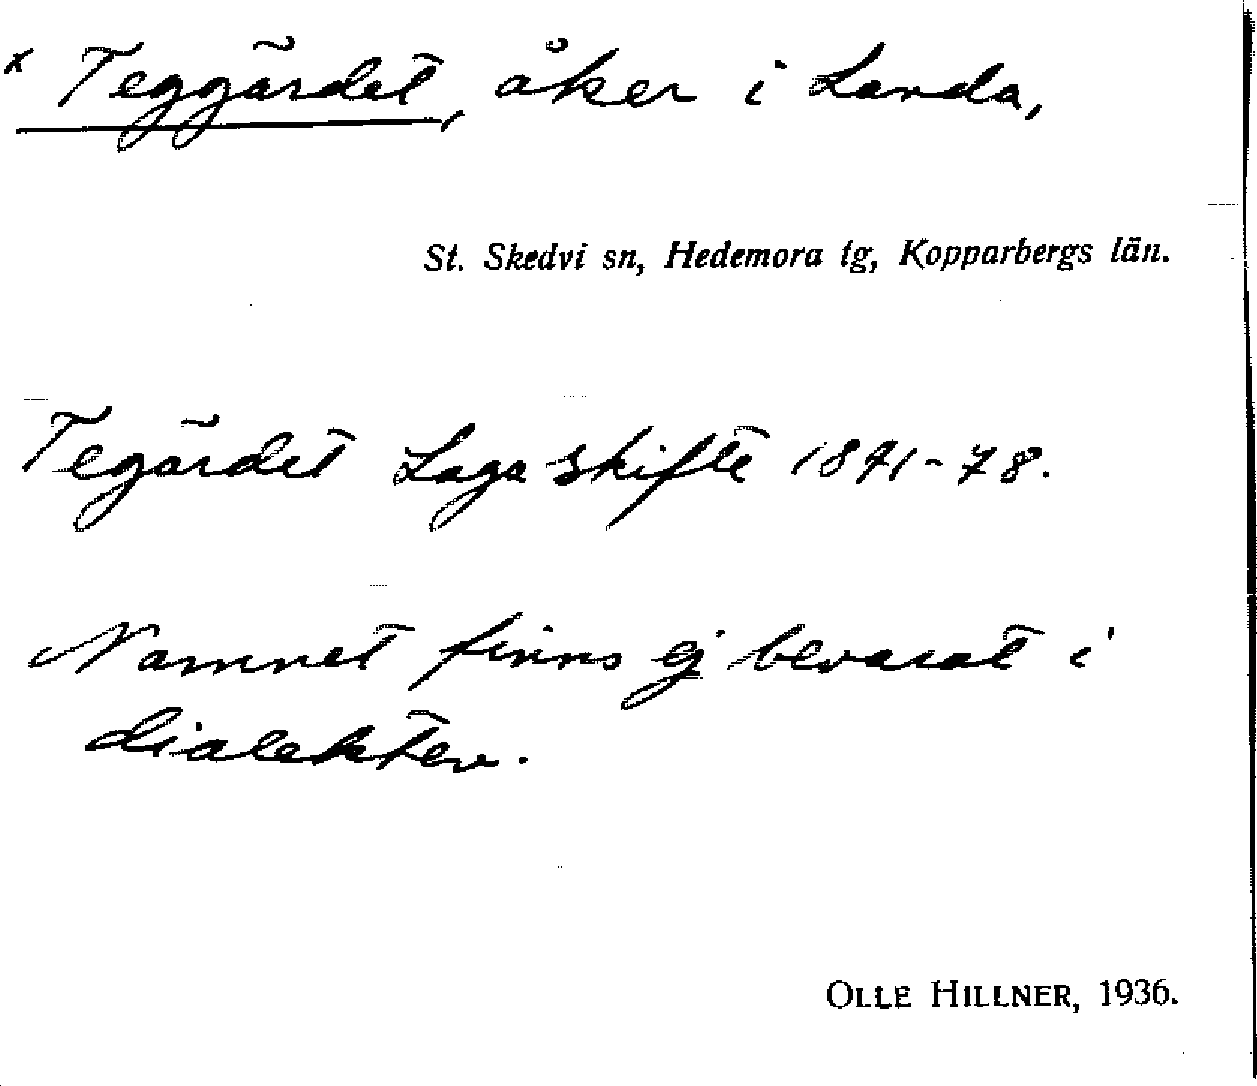 x Teggärdet, åker i Landa,
St. Skedvi sn, Hedemora tg, Kopparbergs län.
Tegärdet Laga skifte 1871-78.
Namnet finns ej bevarat i
dialekten.
OLLE HILLNER, 1936.